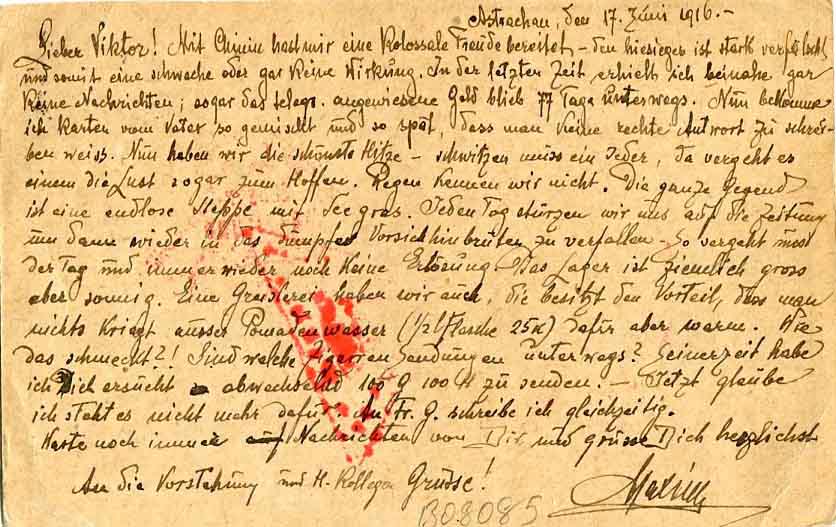 Astrachan, den 17. Juni 1916.-
Lieber Viktor! Mit Chinin hast mir eine Kolossale Freude bereitet - den hiesiger ist stark verfälscht
und somit eine schwache oder gar keine Wirkung. In der letzten Zeit erhielt ich beinahe gar
keine Nachrichten; sogar das telegr. angewiesene Geld blieb 77 Tage unterwegs. Nun bekomme
ich Karten vom Vater so gemischt und so spät, dass man keine rechte Antwort zu schrei-
ben weiss. Nun haben wir die schönste Hitze - schwitzen muss ein Jeder, da vergeht es
einem die Lust sogar zum Hoffen. Regen kennen wir nicht. Die ganze Gegend
ist eine endlose Steppe mit Seegras. Jeden Tag stürzen wir uns auf die Zeitung
um dann wieder in das dumpfes Vorsichhinbrüten zu verfallen - So vergeht uns
der Tag und immer wieder noch keine Erlösung. Das Lager ist ziemlich gross
aber sonnig. Eine Greislerei haben wir auch, die besitzt den Vorteil, dass man
nichts kriegt ausser Pomadenwasser (1/2 l Flasche 25 K) dafür aber warm. Wie
das schmeckt?! Sind welche Zigarren Sendungen unterwegs? Seinerzeit habe
ich Dich ersucht abwechselnd 100 g 100 H zu senden. - Jetzt glaube
ich steht es nicht mehr dafür. An Fr. G. schreibe ich gleichzeitig.
Warte noch immer auf Nachrichten von Dir und grüsse Dich herzlichst
An die Vorstehung und H. Kollegen Grüsse!
B08085